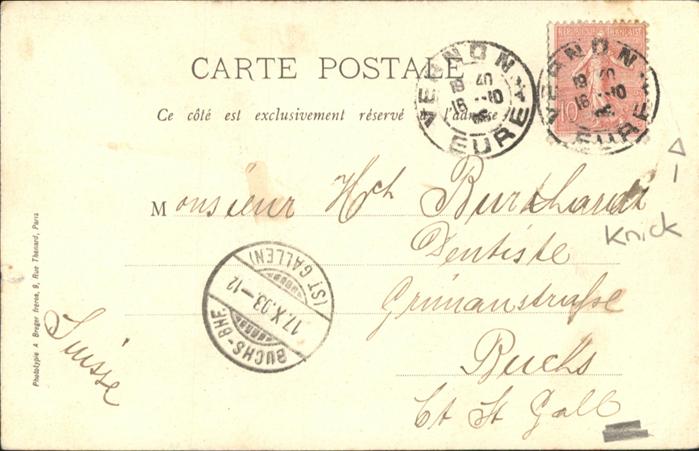 CARTE POSTALE
Ce côté est exclusivement réservé à l'adresse
REPUBLIQUE FRANÇAISE
10
VERNON
EURE
VERNON
EURE
Monsieur Hch Burkhardt
Knick
Dentiste
Grünaustraße
Buchs
Ct St Gall
Suisse
(ST GALLEN)
17.X.03.-12
BUCHS-BHF
Phototypie A Breger frères, 9, Rue Thénard, Paris